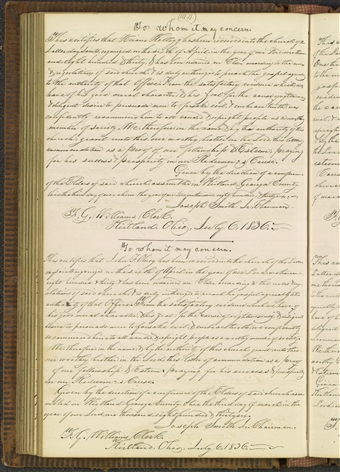 To whom it may concern.
This certifies that has been received into the church of the
Latter day Saints organized on the sixth of April in the year of our Lord one thousand
eight hundred & thirty, & has been ordained an Elder according to the rules
& regulations of said church & is duly authorized to preach the gospel agree-
ably to the authority of that office. From the satisfactory evidence which we
have of his good moral character, & his zeal for the cause of righteousness &
diligent desire to persuade men to forsake evil & embrace truth, we
confidently recommend him to all candid & upright people as a worthy
member of society. We, therefore, in the name & by the authority of this
church grant unto this our worthy brother in the Lord this letter of com-
mendation as a proof of our fellowship & Esteem, praying
for his success & prosperity in our Redeemer's Cause.
Given by the direction of a conference
of the Elders of said church assembled in Kirtland, Geauga County
Ohio the
Joseph Smith Jr. Chairman
F. G. Williams Clerk.
Kirtland, Ohio, July 6, 1836.
To whom it may concern.
This certifies that has been received into the church of the Latter
day Saints organized on the sixth of April in the year of our Lord one thousand
eight hundred & thirty & has been ordained an Elder according to the rules & reg-
ulations of said church & is duly authorized to preach the gospel agreeably to the
authority of that Office. From the satisfactory evidence which we have of
his good moral character, & his zeal for the cause of righteousness, & diligent
desire to persuade men to forsake evil & embrace truth, we confidently
recommend him to all candid & upright people as a worthy member of society.
We, therefore, in the name & by the authority of this church grant unto this
our worthy brother in the Lord this letter of commendation as a proof
of our fellowship & Esteem, praying for his success & prosperity
in our Redeemer's Cause.
Given by the direction of a conference of the Elders of said church assem-
bled in Kirtland, Geauga County, Ohio, the third day of in the
year of our Lord one thousand, eight hundred & thirty six.
Joseph Smith Jr. Chairman.
F. G. Williams Clerk
Kirtland, Ohio, July 6, 1836.